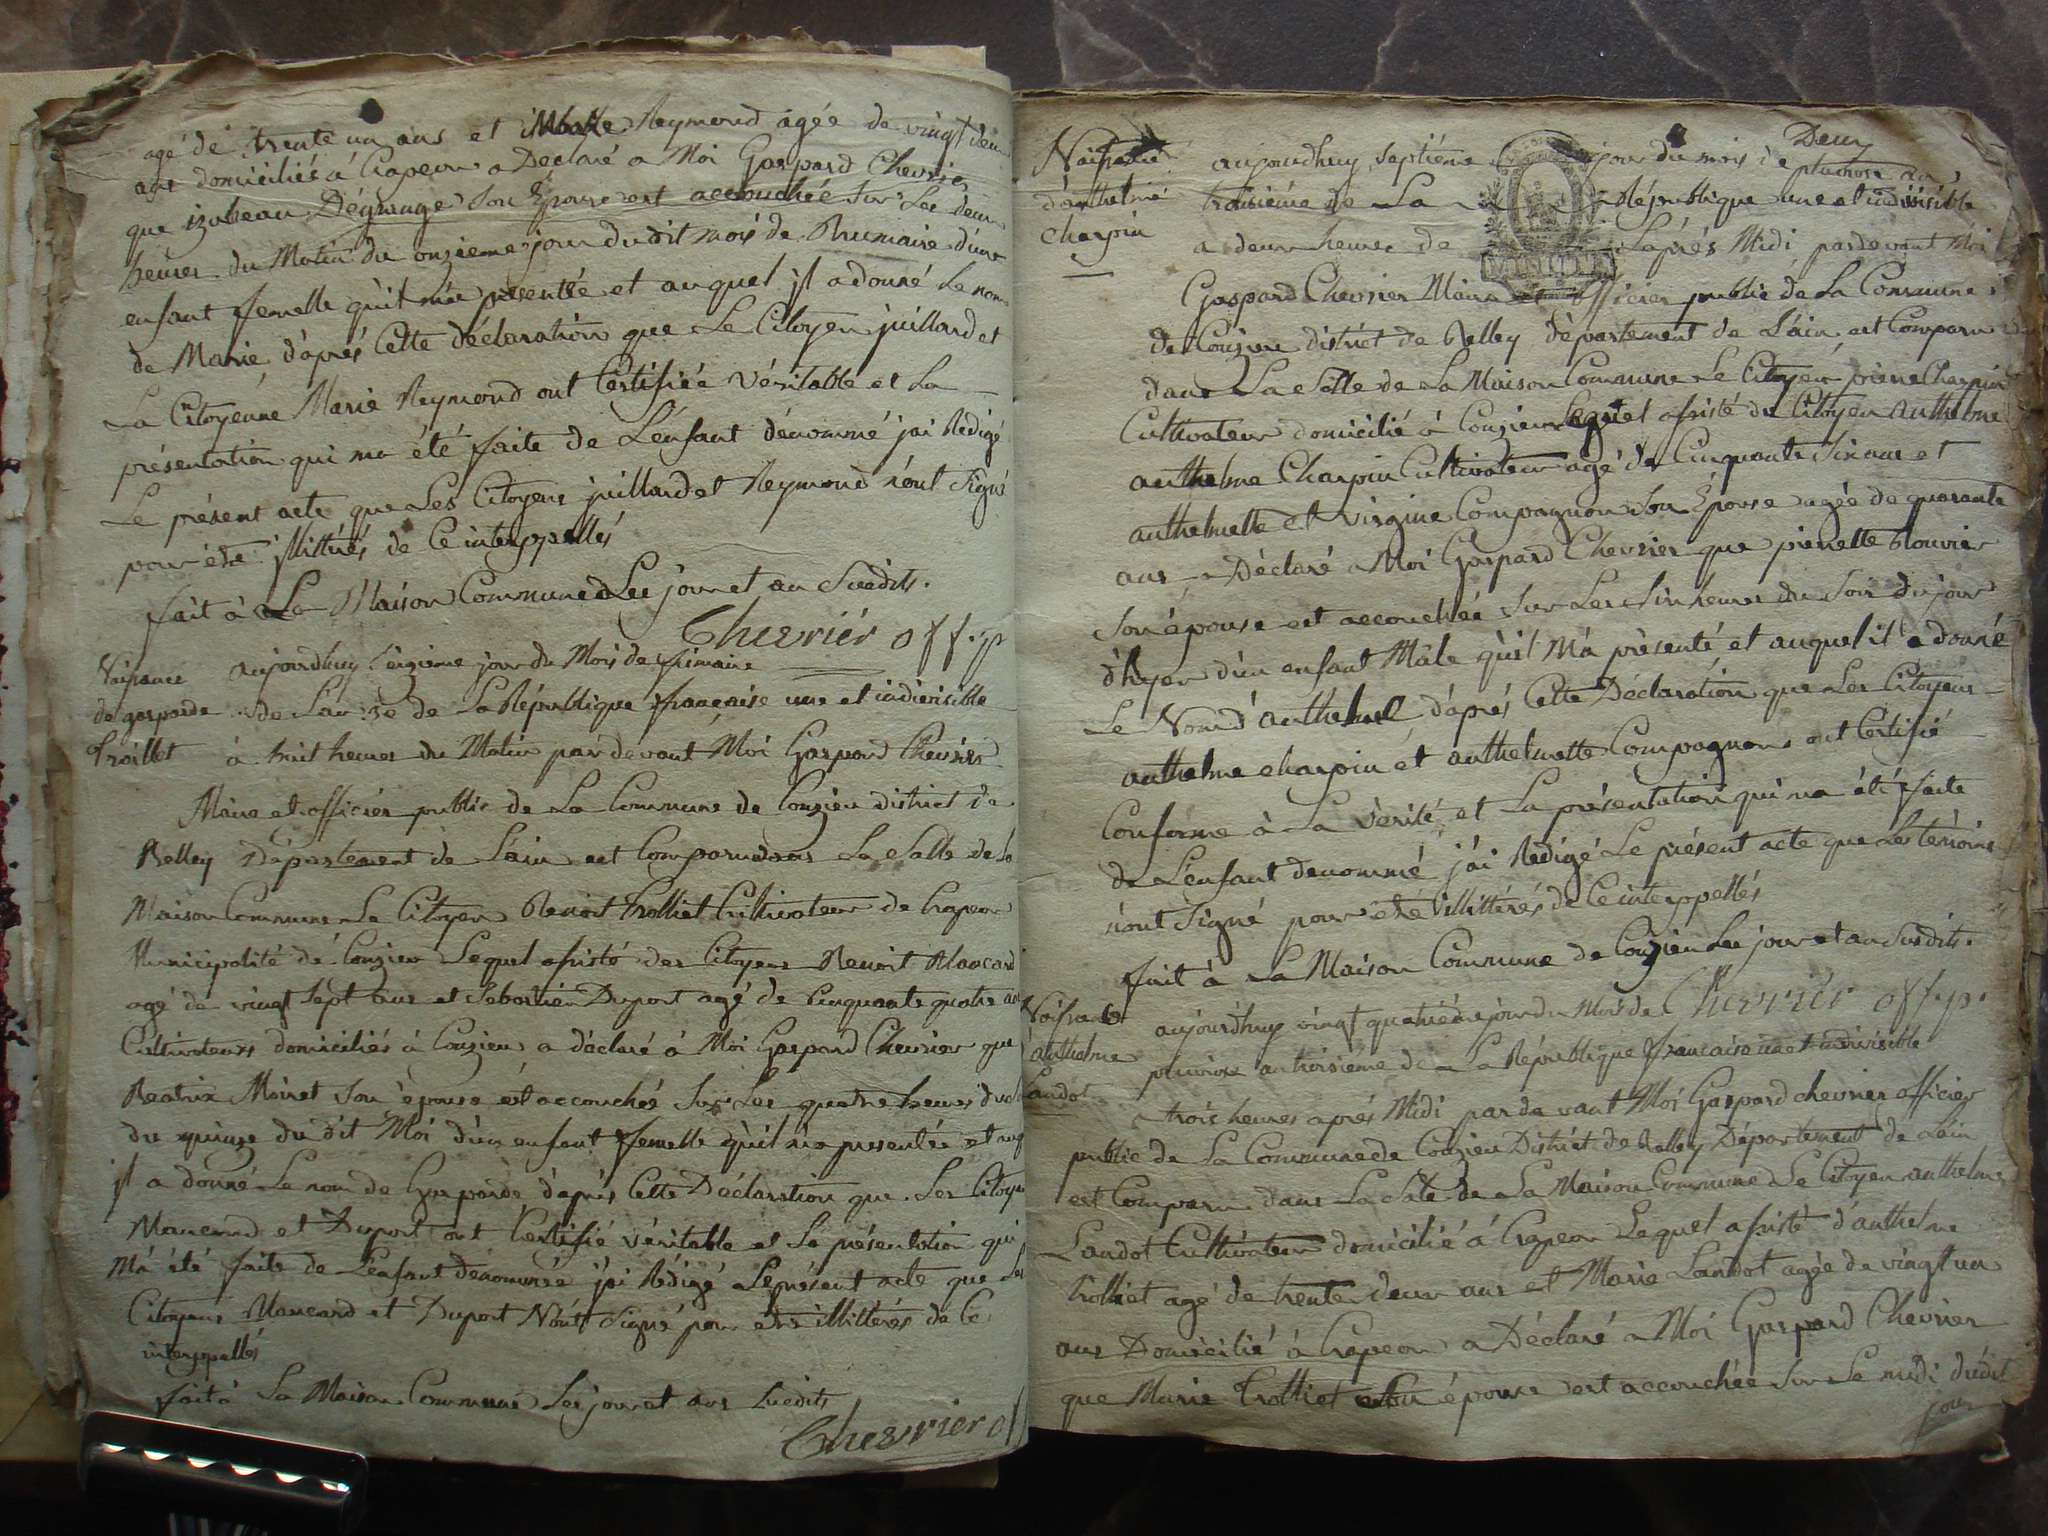 agé de trente un ans et Reymond agée de vingt deux
ans domiciliés à Crapeou a Declaré a Moi Gaspard Chevrier
que izabeau Dégrange son Epouse est accouchée sur Les deux
heures du Matin du onzieme jour du dit mois de Brumaire d'une
enfant femelle qu'il m'a presentée et auquel jl a donné Le nom
de Marie, d'aprés Cette déclaration que Le Citoyen juillard et
La Citoyenne Marie Reymond ont Certifiée véritable et La
présentation qui ma été faite de L'enfant dénommé j'ai Rédigé
Le présent acte que Les Citoyens juillard et Reymond n'ont Signé
pour étre jllittérés de Ce interppellés
fait à La Maison Commune Les jour et an Susdits.
Chevriér off. p
Naissance aujourdhuy seizieme jour du Mois de frimaire
de gasparde de L'an 3e de La République française une et indivisible
Troillet à huit heures du Matin par devant Moi Gaspard Chevrier
Maire et officier public de La Commune de Conzieu district de
Belley Département de L'ain est Comparu dans La Salle de La
Maison Commune Le Citoyen Benoit Trolliet Cultivateur de Crapeou
Municipalité de Conzieu Lequel assisté des Citoyens Benoit Mancard
agé de vingt sept ans et Sebastien Duport agé de Cinquante quatre an
Cultivateurs domiciliés à Conzieu a déclaré à Moi Gaspard Chevrier que
Beatrix Moiret son épouse est accouchée Sur Les quatre heures du
du quinze du dit Moi d'un enfant femelle qu'il m'a presentée et auq
jl a donné Le nom de Gasparde d'aprés Cette Déclaration que Les Citoyens
Mancard et Duport ont Certifié véritable et La présentation qui
M'a été faite de L'enfant dénommée j'ai Rédigé Le présent acte que Les
Citoyens Mancard et Duport N'ont Signé pour etre illittérés de Ce
interppellés
fait à La Maison Commune Les jour et ans Susdits
Chevrier of
Deux
Naissance aujourdhuy Septiéme jour du mois de pluviose an
d'anthelme troisiéme de La République une et indivisible
Charpin a deux heures de L'aprés Midi pardevant Moi
Gaspard Chevrier Maire et officier public de La Commune
de Conzieu district de Belley département de L'ain est Comparu
dans La Salle de La Maison Commune Le Citoyen pierre Charpin
Cultivateur domicilié à Conzieu Lequel assisté du Citoyen anthelme
anthelme Charpin Cultivateur agé de Cinquante Six ans et
anthelmette et virgine Compagnon Son Epouse agée de quarante
ans a Déclaré a Moi Gaspard Chevrier que pierrette Bouvier
Son épouse est accouchée Sur Les Six heures du Soir du jour
d'hyer d'un enfant Mâle qu'il M'a présenté et auquel il a donné
Le Nom d'anthelme d'aprés Cette Déclaration que Les Citoyens
anthelme charpin et anthelmette Compagnons ont Certifié
Conforme à La vérité, et La présentation qui ma été faite
de L'enfant denommé j'ai Redigé Le présent acte que Les témoins
n'ont Signé pour etre illittérés de Ce interppellés
fait à La Maison Commune de Conzieu Les jour et an Susdits.
Chevriér off. p.
Naissance aujourdhuy vingt quatriéme jour du Mois de
d'anthelme pluviose an troisieme de La République francaise une et indivisible
Landot trois heures aprés Midi par devant Moi Gaspard chevrier officier
public de La Commune de Conzieu District de Belley Département de L'ain
est Comparu dans La Salle de La Maison Commune Le Citoyen anthelme
Landot Cultivateur domicilié à Crapeou Lequel assisté d'anthelme
trolliet agé de trente deux ans et Marie Landot agée de vingt un
ans Domicilié à Crapeou a Déclaré a Moi Gaspard Chevrier
que Marie Trolliet Son épouse est accouchée Sur Le midi dudit
jour